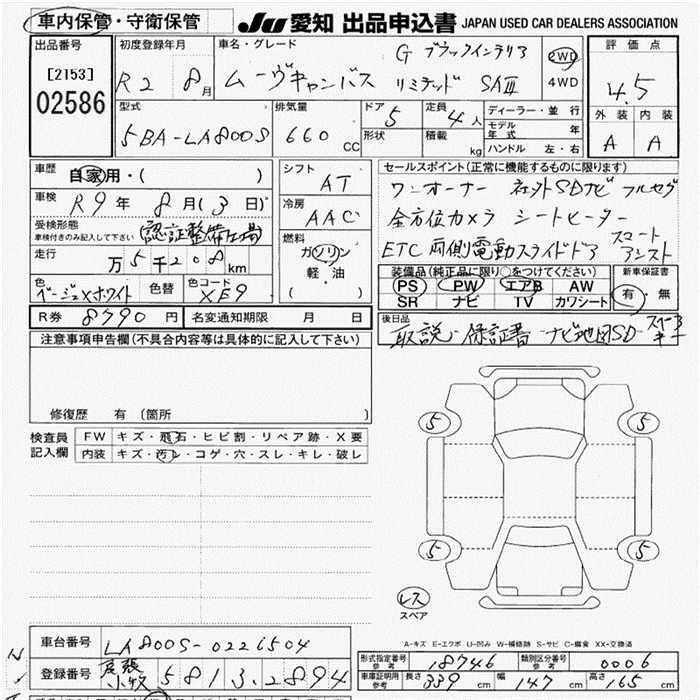 車内保管・守衛保管 JU 愛知 出品申込書 JAPAN USED CAR DEALERS ASSOCIATION
出品番号 [2153] 02586
初度登録年月 R2 8月
車名・グレード ムーヴキャンバス G ブラックインテリア リミテッド SAⅢ
2WD 4WD
評価点 4.5
外装 内装
A A
型式 5BA-LA800S
排気量 660 CC
ドア 5 定員 4人
形状 積載 kg
ディーラー・並行
モデル年式 年
ハンドル 左・右
車歴 自家用・( )
車検 R9年 8月(3日)
受検形態 車検付きのみ記入して下さい (認証整備工場)
走行 万5千208km
色 ベージュ×ホワイト 色替 色コード XE9
シフト AT
冷房 AAC
燃料 ガソリン 軽・油
セールスポイント(正常に機能するものに限ります)
ワンオーナー 社外SDナビ フルセグ
全方位カメラ シートヒーター
ETC 両側電動スライドドア スマートアシスト
装備品(純正品に限り○をつけてください)
PS PW エアB AW
SR ナビ TV カワシート
新車保証書
有・無
R券 8790円 名変通知期限 月 日
後日品
取説・保証書 ナビ地図SD スペアキー
注意事項申告欄(不具合内容等は具体的に記入して下さい)
修復歴 有 (箇所 )
検査員記入欄
FW キズ・飛石・ヒビ割・リペア跡・X要
内装 キズ・汚レ・コゲ・穴・スレ・キレ・破レ
5 5
5 5
レス
スペア
A-キズ E-エクボ U-凹み W-補修跡 S-サビ C-腐食 XX-交換済
車台番号 LA800S-0226504
登録番号 尾張小牧 581 3 2894
形式指定番号 参考 18746 類別区分番号 参考 0006
車庫証明用 参考 長さ 339cm 幅 147cm 高さ 165cm